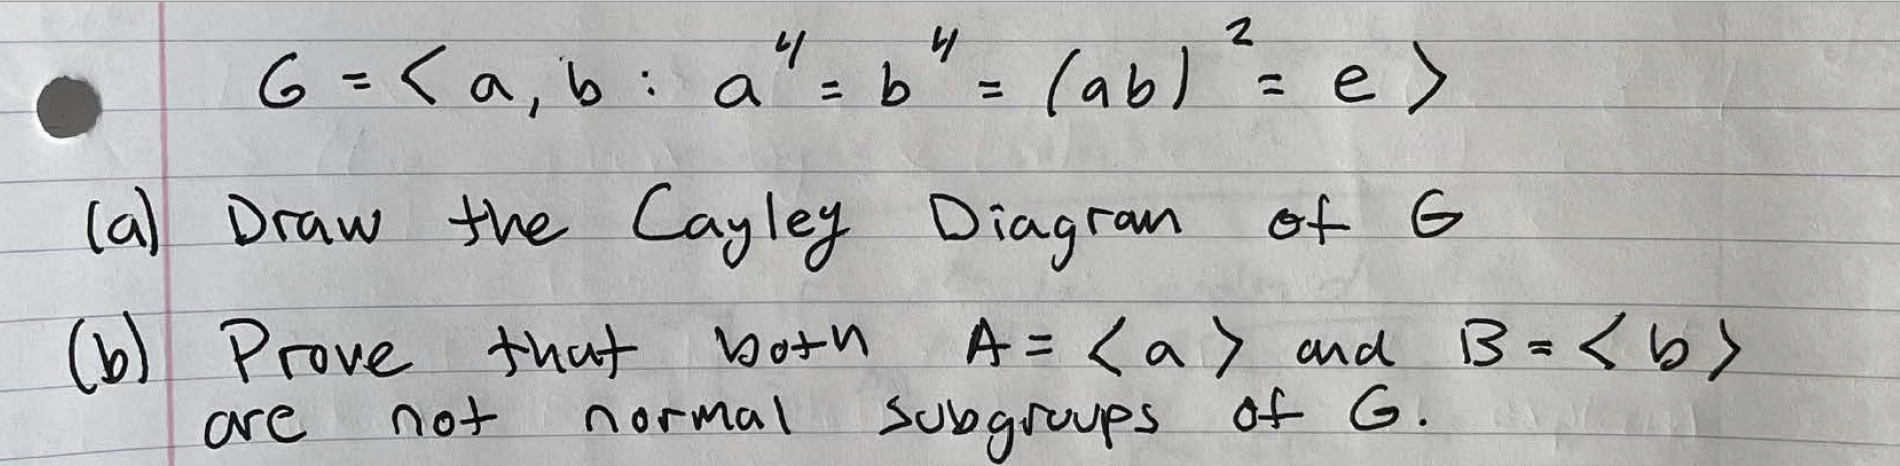 G = < a, b : a⁴ = b⁴ = (ab)² = e >
(a) Draw the Cayley Diagram of G
(b) Prove that both A = < a > and B = < b >
are not normal subgroups of G.